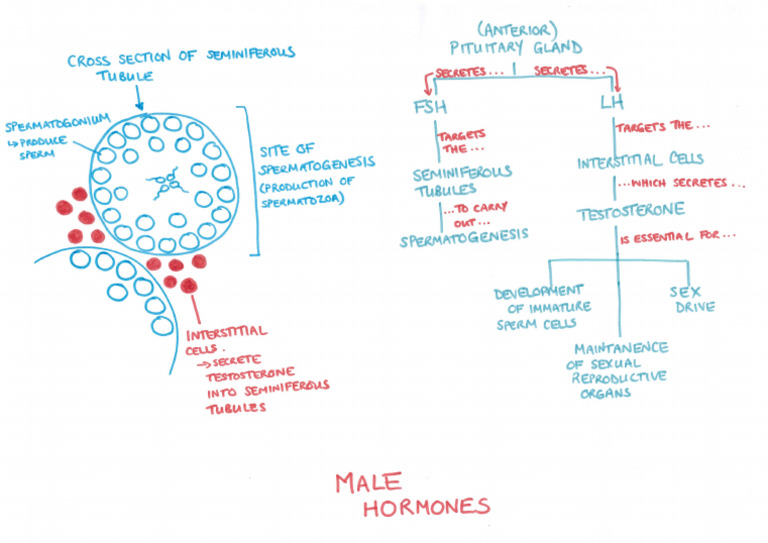 CROSS SECTION OF SEMINIFEROUS
TUBULE
SPERMATOGONIUM
↳ PRODUCE
SPERM
SITE OF
SPERMATOGENESIS
(PRODUCTION OF
SPERMATOZOA)
INTERSTITIAL
CELLS.
→ SECRETE
TESTOSTERONE
INTO SEMINIFEROUS
TUBULES
(ANTERIOR)
PITUITARY GLAND
SECRETES... SECRETES...
FSH
TARGETS
THE...
SEMINIFEROUS
TUBULES
...TO CARRY
OUT...
SPERMATOGENESIS
LH
TARGETS THE...
INTERSTITIAL CELLS
...WHICH SECRETES...
TESTOSTERONE
IS ESSENTIAL FOR...
DEVELOPMENT
OF IMMATURE
SPERM CELLS
MAINTANENCE
OF SEXUAL
REPRODUCTIVE
ORGANS
SEX
DRIVE
MALE
HORMONES